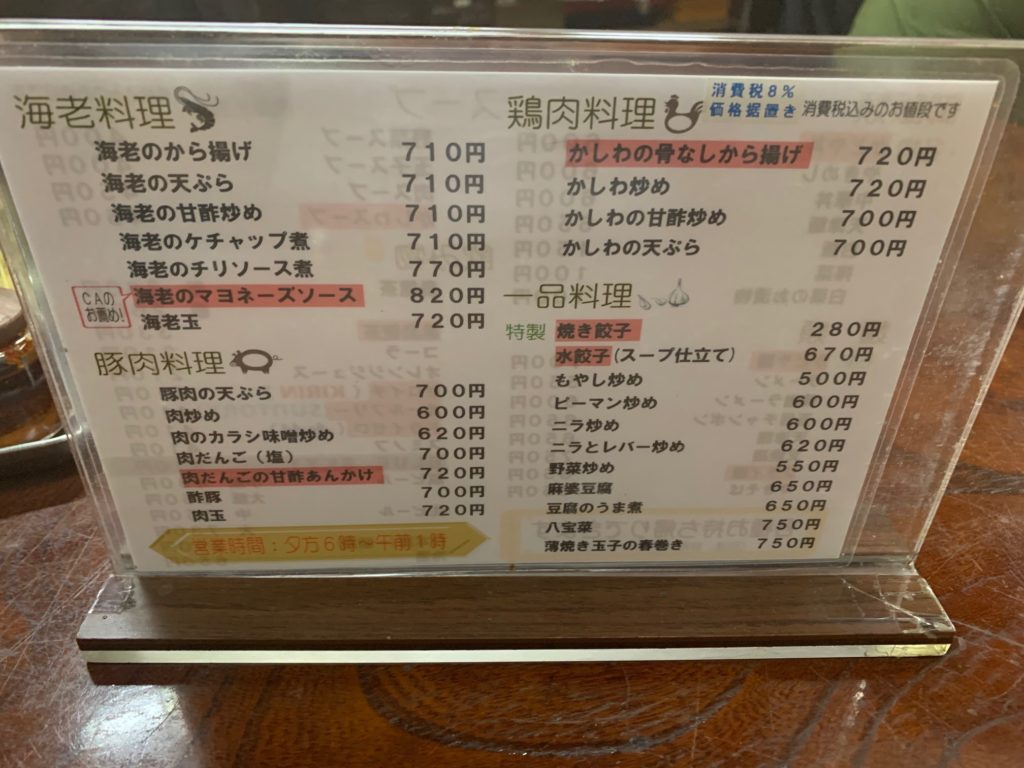 海老料理
海老のから揚げ 710円
海老の天ぷら 710円
海老の甘酢炒め 710円
海老のケチャップ煮 710円
海老のチリソース煮 770円
CAの
お薦め!
海老のマヨネーズソース 820円
海老玉 720円
豚肉料理
豚肉の天ぷら 700円
肉炒め 600円
肉のカラシ味噌炒め 620円
肉だんご(塩) 700円
肉だんごの甘酢あんかけ 720円
酢豚 700円
肉玉 720円
営業時間:夕方6時~午前1時
鶏肉料理
消費税8%
価格据置き 消費税込みのお値段です
かしわの骨なしから揚げ 720円
かしわ炒め 720円
かしわの甘酢炒め 700円
かしわの天ぷら 700円
一品料理
特製 焼き餃子 280円
水餃子(スープ仕立て) 670円
もやし炒め 500円
ピーマン炒め 600円
ニラ炒め 600円
ニラとレバー炒め 620円
野菜炒め 550円
麻婆豆腐 650円
豆腐のうま煮 650円
八宝菜 750円
薄焼き玉子の春巻き 750円